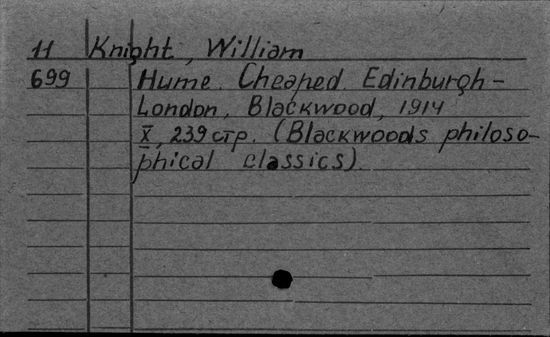 11 Knight, William
699 Hume. Cheaped. Edinburgh-
London, Blackwood, 1914
X, 239 стр. (Blackwoods philoso-
phical classics).